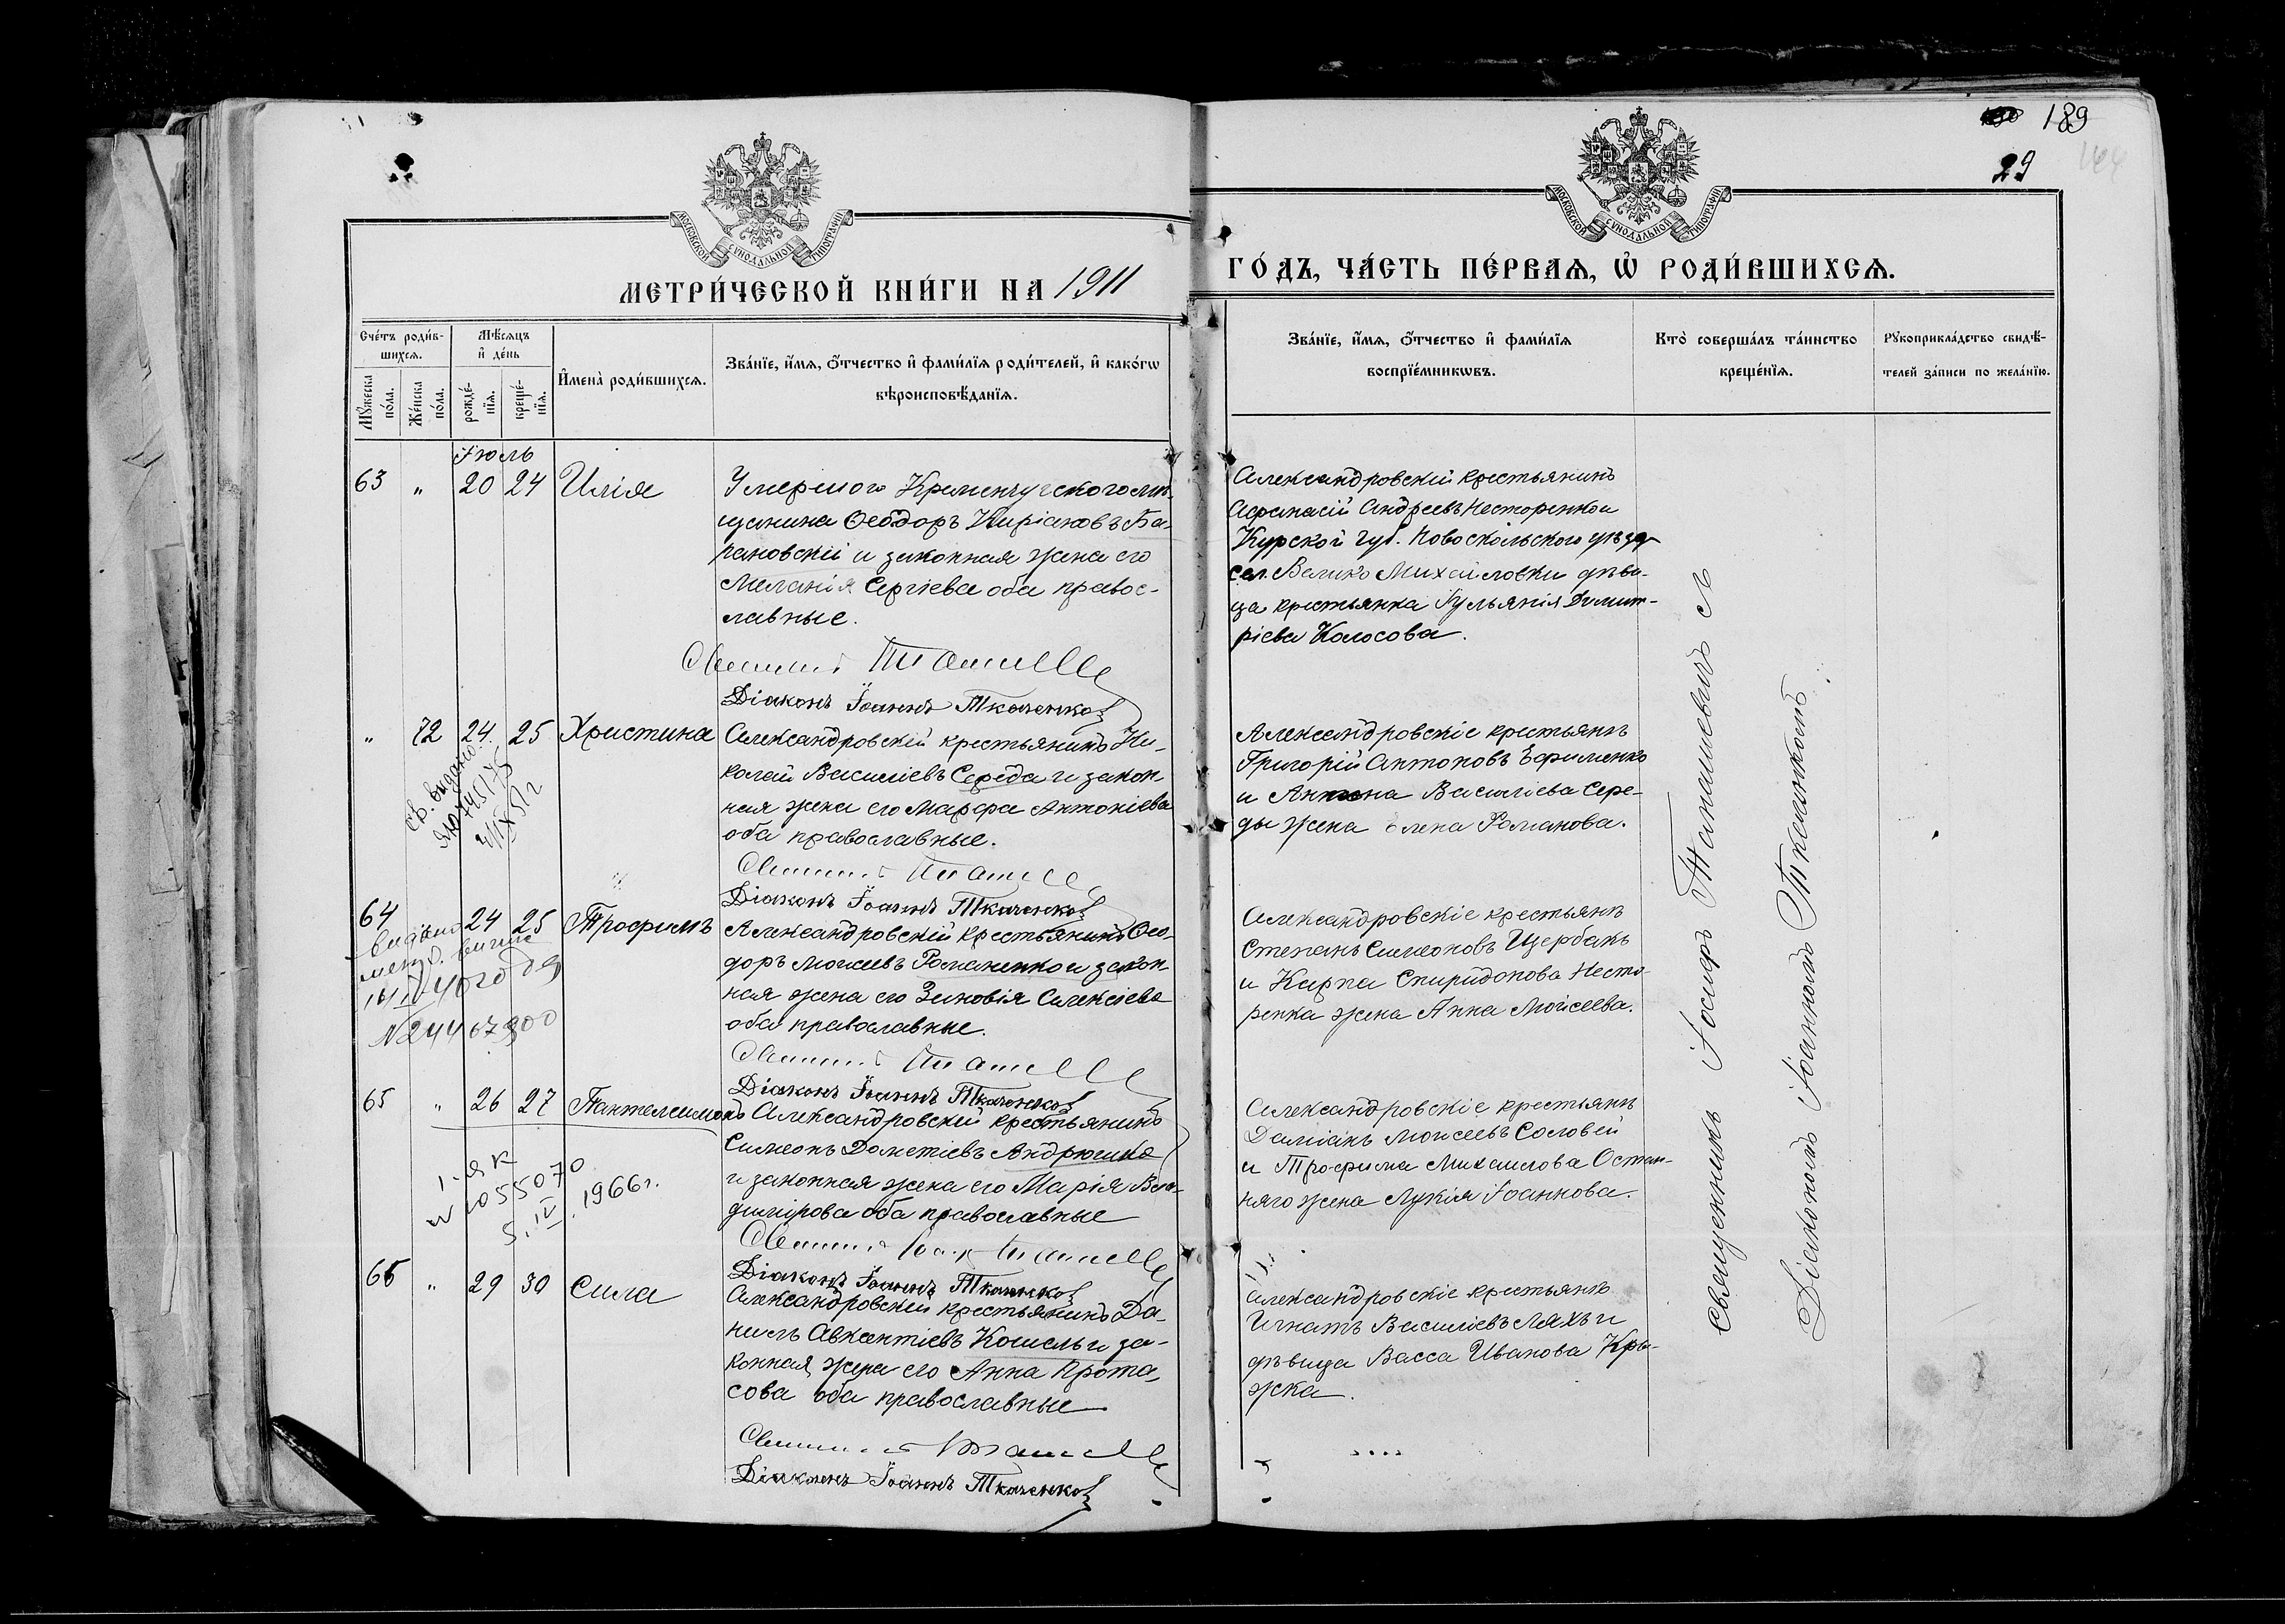 189
29
МОСКОВСКОЙ СѴНОДАЛЬНОЙ ТИПОГРАФІИ
МОСКОВСКОЙ СѴНОДАЛЬНОЙ ТИПОГРАФІИ
МЕТРИ́ЧЕСКОЙ КНИ́ГИ НА 1911
ГО́ДЪ, ЧА́СТЬ ПЕ́РВАѦ, Ѡ҆ РОДИ́ВШИХСѦ.
Сче́тъ роди́в-
шихсѧ.
Мꙋжеска по́ла.
Же́нска по́ла.
Мѣ́сѧцъ
и҆ де́нь
рожде́-
нїѧ.
креще́-
нїѧ.
И҆мена̀ роди́вшихсѧ.
Зва́нїе, и҆́мѧ, ѻ҆́тчество и҆ фами́лїѧ роди́телей, и҆ како́гѡ
вѣроисповѣ́данїѧ.
Зва́нїе, и҆́мѧ, ѻ҆́тчество и҆ фами́лїѧ
воспрїе́мникѡвъ.
Кто̀ соверша́лъ та́инство
креще́нїѧ.
Рꙋкоприкла́дство свидѣ́-
телей за́писи по жела́нїю.
Іюль
63 " 20 24 Илія
Умершого Кременчугского мѣ-
щанина Ѳеодоръ Киріаковъ Ба-
рановскій и законная жена его
Меланія Сергіева оба правос-
лавные.
Діаконъ Іоаннъ Ткаченко
Александровскій крестьянинъ
Афанасій Андреевъ Несторенко и
Курской губ. Новоскольского уѣзда
сел. Велико Михайловки дѣви-
ца крестьянка Іульянія Димит-
ріева Колосова.
" 72 24 25 Христина
св. выдано
Александровскій крестьянинъ Ни-
колай Василіевъ Середа и закон
ная жена его Марфа Антоніева
оба православные.
Діаконъ Іоаннъ Ткаченко
Александровскіе крестьянъ
Григорій Антоновъ Ефименко
и Антона Василіева Сере-
ды жена Елена Романова.
64 24 25 Трофимъ
Александровскій крестьянинъ Ѳео-
доръ Моисеевъ Романенко и закон
ная жена его Зиновія Алексіева
оба православные.
Діаконъ Іоаннъ Ткаченко
Александровскіе крестьянъ
Степанъ Симеоновъ Щербакъ
и Карпа Спиридонова Несто-
ренка жена Анна Моисеева.
65 " 26 27 Пантелеимонъ
1966 г.
Александровскій крестьянинъ
Симеонъ Дометіевъ Андрюшка
и законная жена его Марія Вла-
димірова оба православные
Діаконъ Іоаннъ Ткаченко
Александровскіе крестьянъ
Даміанъ Моисеевъ Соловей
и Трофима Михаилова Остап-
няго жена Лукія Іоаннова.
66 " 29 30 Сила
Александровскій крестьянинъ Да-
ніилъ Авксентіевъ Кошель и за-
конная жена его Анна Прота-
сова оба православные
Діаконъ Іоаннъ Ткаченко
Александровскіе крестьянъ
Игнатъ Василіевъ Ляхъ и
дѣвица Васса Иванова Кры-
жка.
Священникъ Іосифъ
Діакономъ Іоанномъ Ткаченкомъ